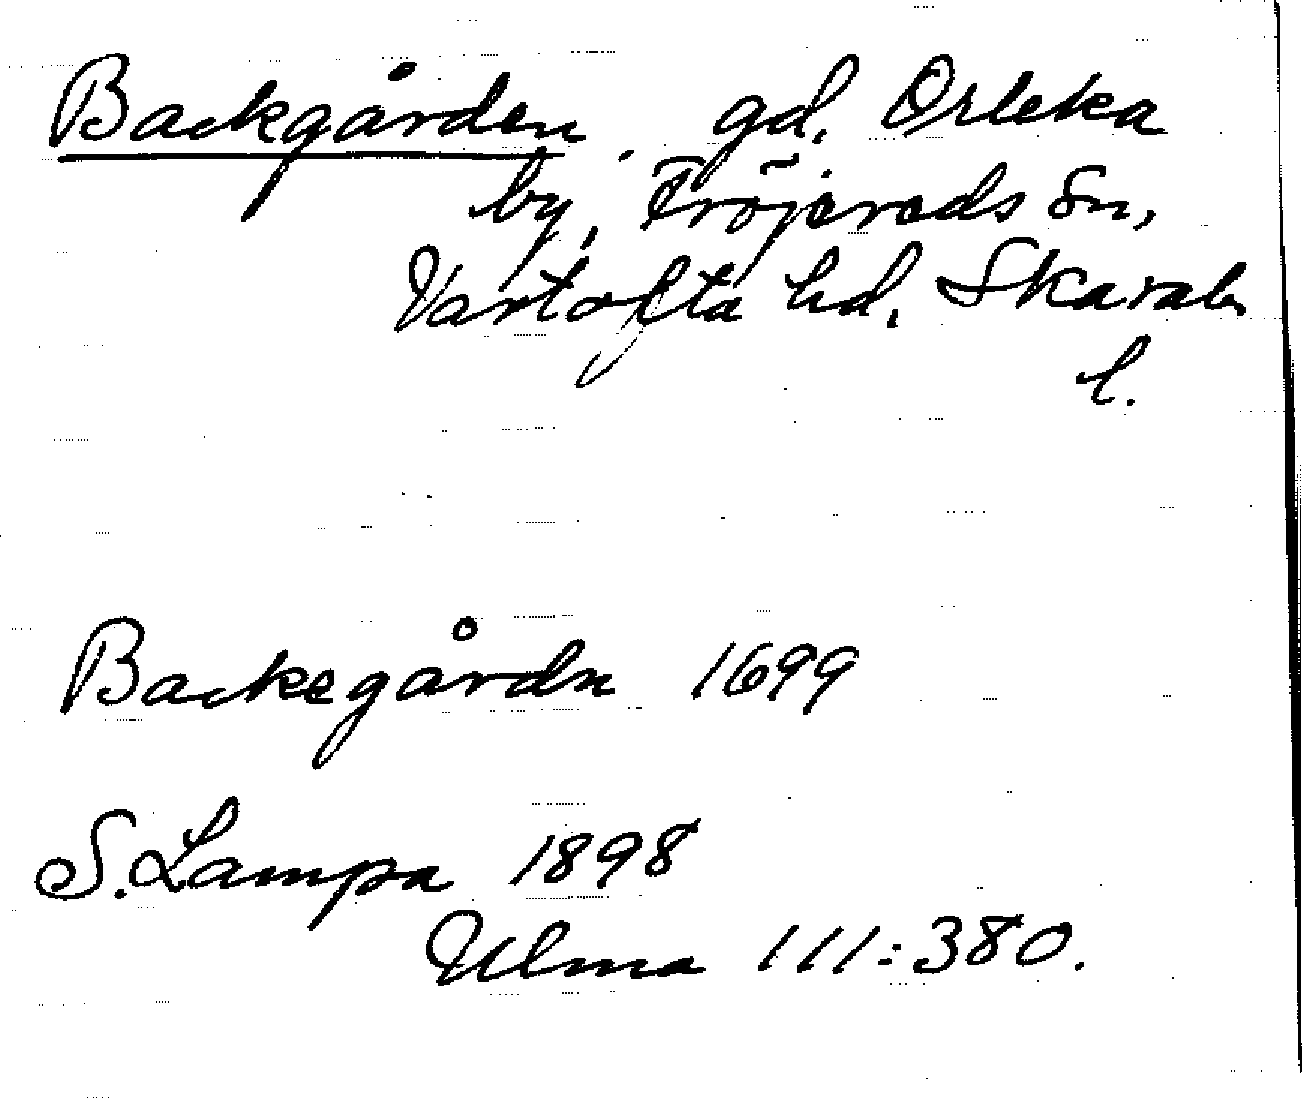 Backgården gd. Orleka
by, Fröjereds Sn,
Vartofta hd. Skarab.
l.
Backegårdn 1699
S. Lampa 1898
Ulma 111:380.